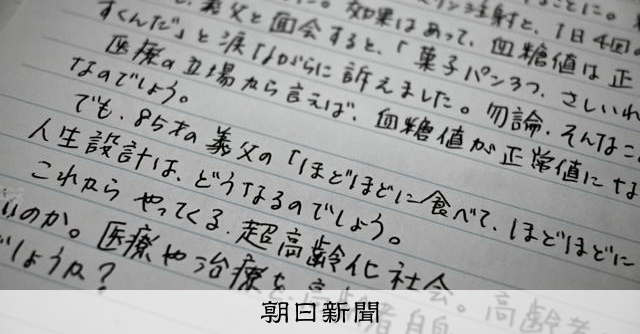 注射と、1日4回の
。効果はあって、血糖値は正
義父と面会すると、「菓子パン3つ、さしいれ
すくんだ」と涙ながらに訴えました。勿論、そんなこ
医療の立場から言えば、血糖値が正常値にな
なのでしょう。
でも、85才の義父の「ほどほどに食べて、ほどほどに
人生設計は、どうなるのでしょう。
これからやってくる、超高齢化社会。高齢者
いのか。医療や治療を
でしょうか?
朝日新聞